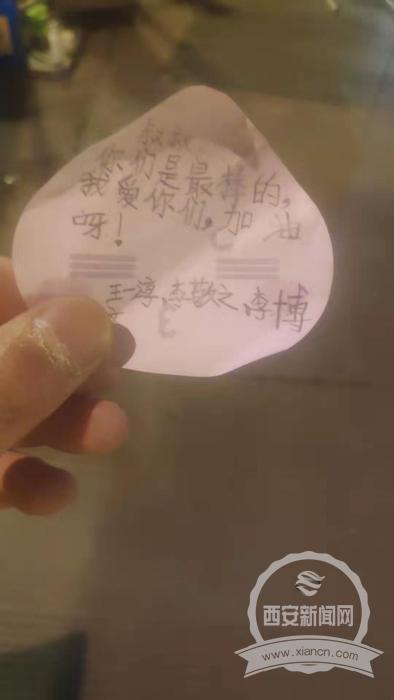 叔叔
您们是最棒的,
我爱你们,加油
呀!
王一淳、李敬之、李博
西安新闻网
www.xiancn.com